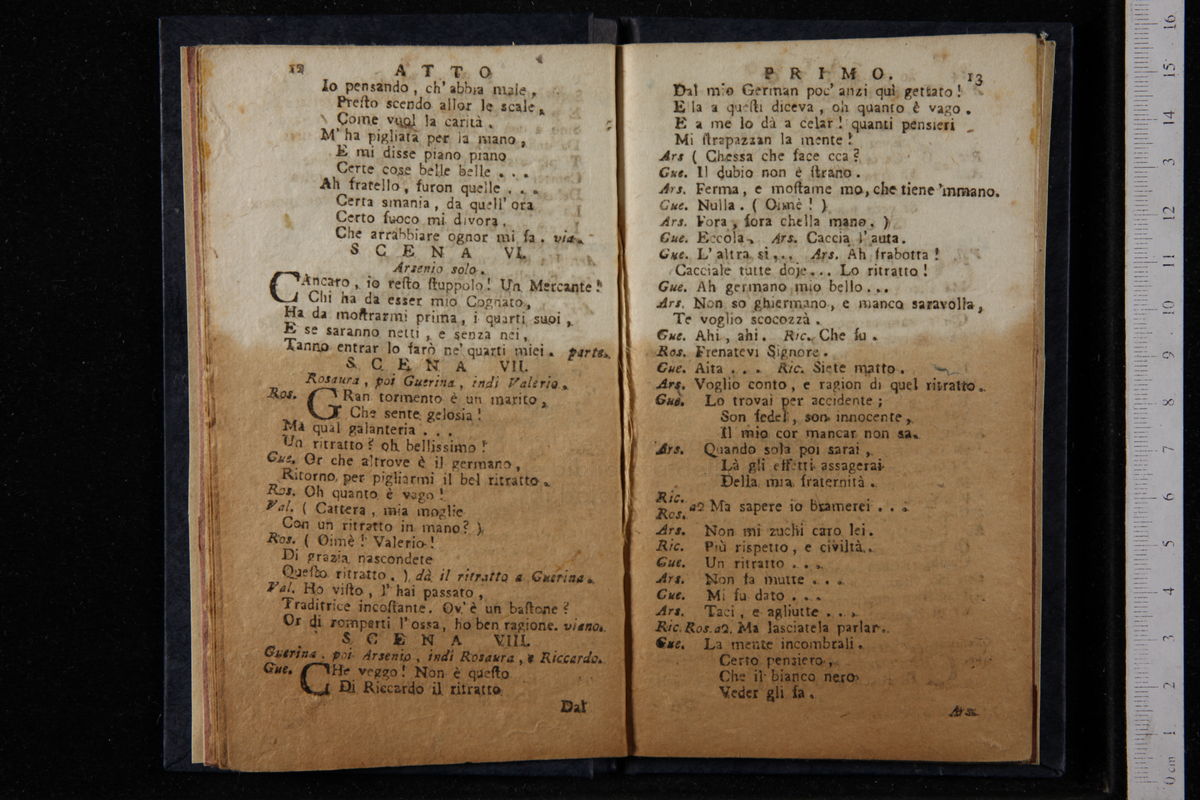 12 ATTO
Io pensando, ch' abbia male,
Preſto scendo allor le scale,
Come vuol la carità.
M' ha pigliata per la mano,
E mi disse piano piano
Certe cose belle belle . . .
Ah fratello, furon quelle . . .
Certa smania, da quell' ora
Certo fuoco mi divora.
Che arrabbiare ognor mi fa. via.
SCENA VI.
Arsenio solo.
CAncaro, io reſto ſtuppolo! Un Mercante!
Chi ha da esser mio Cognato,
Ha da moſtrarmi prima, i quarti suoi,
E se saranno netti, e senza nei,
Tanno entrar lo farò ne' quarti miei. parte.
SCENA VII.
Rosaura, poi Guerina, indi Valerio.
Ros. GRan tormento è un marito,
Che sente gelosia!
Ma qual galanteria . . .
Un ritratto? oh bellissimo!
Gue. Or che altrove è il germano,
Ritorno per pigliarmi il bel ritratto.
Ros. Oh quanto è vago!
Val. ( Cattera, mia moglie
Con un ritratto in mano? )
Ros. ( Oimè! Valerio!
Di grazia nascondete
Queſto ritratto. ) dà il ritratto a Guerina.
Val. Ho viſto, l' hai passato,
Traditrice incoſtante. Ov' è un baſtone?
Or di romperti l' ossa, ho ben ragione. viano.
SCENA VIII.
Guerina, poi Arsenio, indi Rosaura, e Riccardo.
Gue. CHe veggo! Non è queſto
Di Riccardo il ritratto
Dal
PRIMO. 13
Dal mio German poc' anzi qui gettato!
E la a queſti diceva, oh quanto è vago.
E a me lo dà a celar! quanti pensieri
Mi ſtrapazzan la mente!
Ars ( Chessa che face cca?
Gue. Il dubio non è ſtrano.
Ars. Ferma, e moſtame mo, che tiene 'mmano.
Gue. Nulla. ( Oimè! )
Ars. Fora, fora chella mano. )
Gue. Eccola. Ars. Caccia l' auta.
Gue. L' altra si... Ars. Ah frabotta!
Cacciale tutte doje... Lo ritratto!
Gue. Ah germano mio bello...
Ars. Non so ghiermano, e manco saravolla,
Te voglio scocozzà.
Gue. Ahi, ahi. Ric. Che fu.
Ros. Frenatevi Signore.
Gue. Aita . . . Ric. Siete matto.
Ars. Voglio conto, e ragion di quel ritratto.
Gue. Lo trovai per accidente;
Son fedel, son innocente,
Il mio cor mancar non sa.
Ars. Quando sola poi sarai,
Là gli effetti assagerai
Della mia fraternità.
Ric.
Ros. a2 Ma sapere io bramerei . . .
Ars. Non mi zuchi caro lei.
Ric. Più rispetto, e civiltà.
Gue. Un ritratto . . .
Ars. Non fa mutte . . .
Gue. Mi fu dato . . .
Ars. Taci, e agliutte . . .
Ric. Ros. a2. Ma lasciatela parlar.
Gue. La mente incombrali.
Certo pensiero,
Che il bianco nero
Veder gli fa.
Ars.